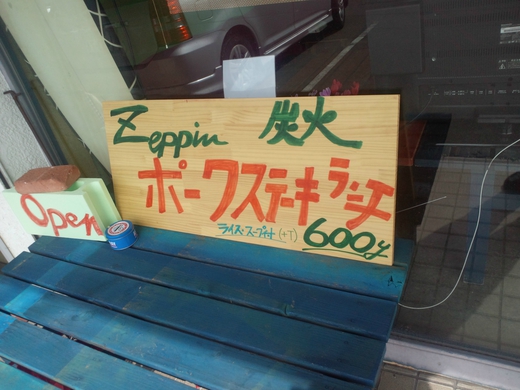 Zeppin 炭火
ポークステーキランチ
ライス・スープ付 (+T) 600y
Open